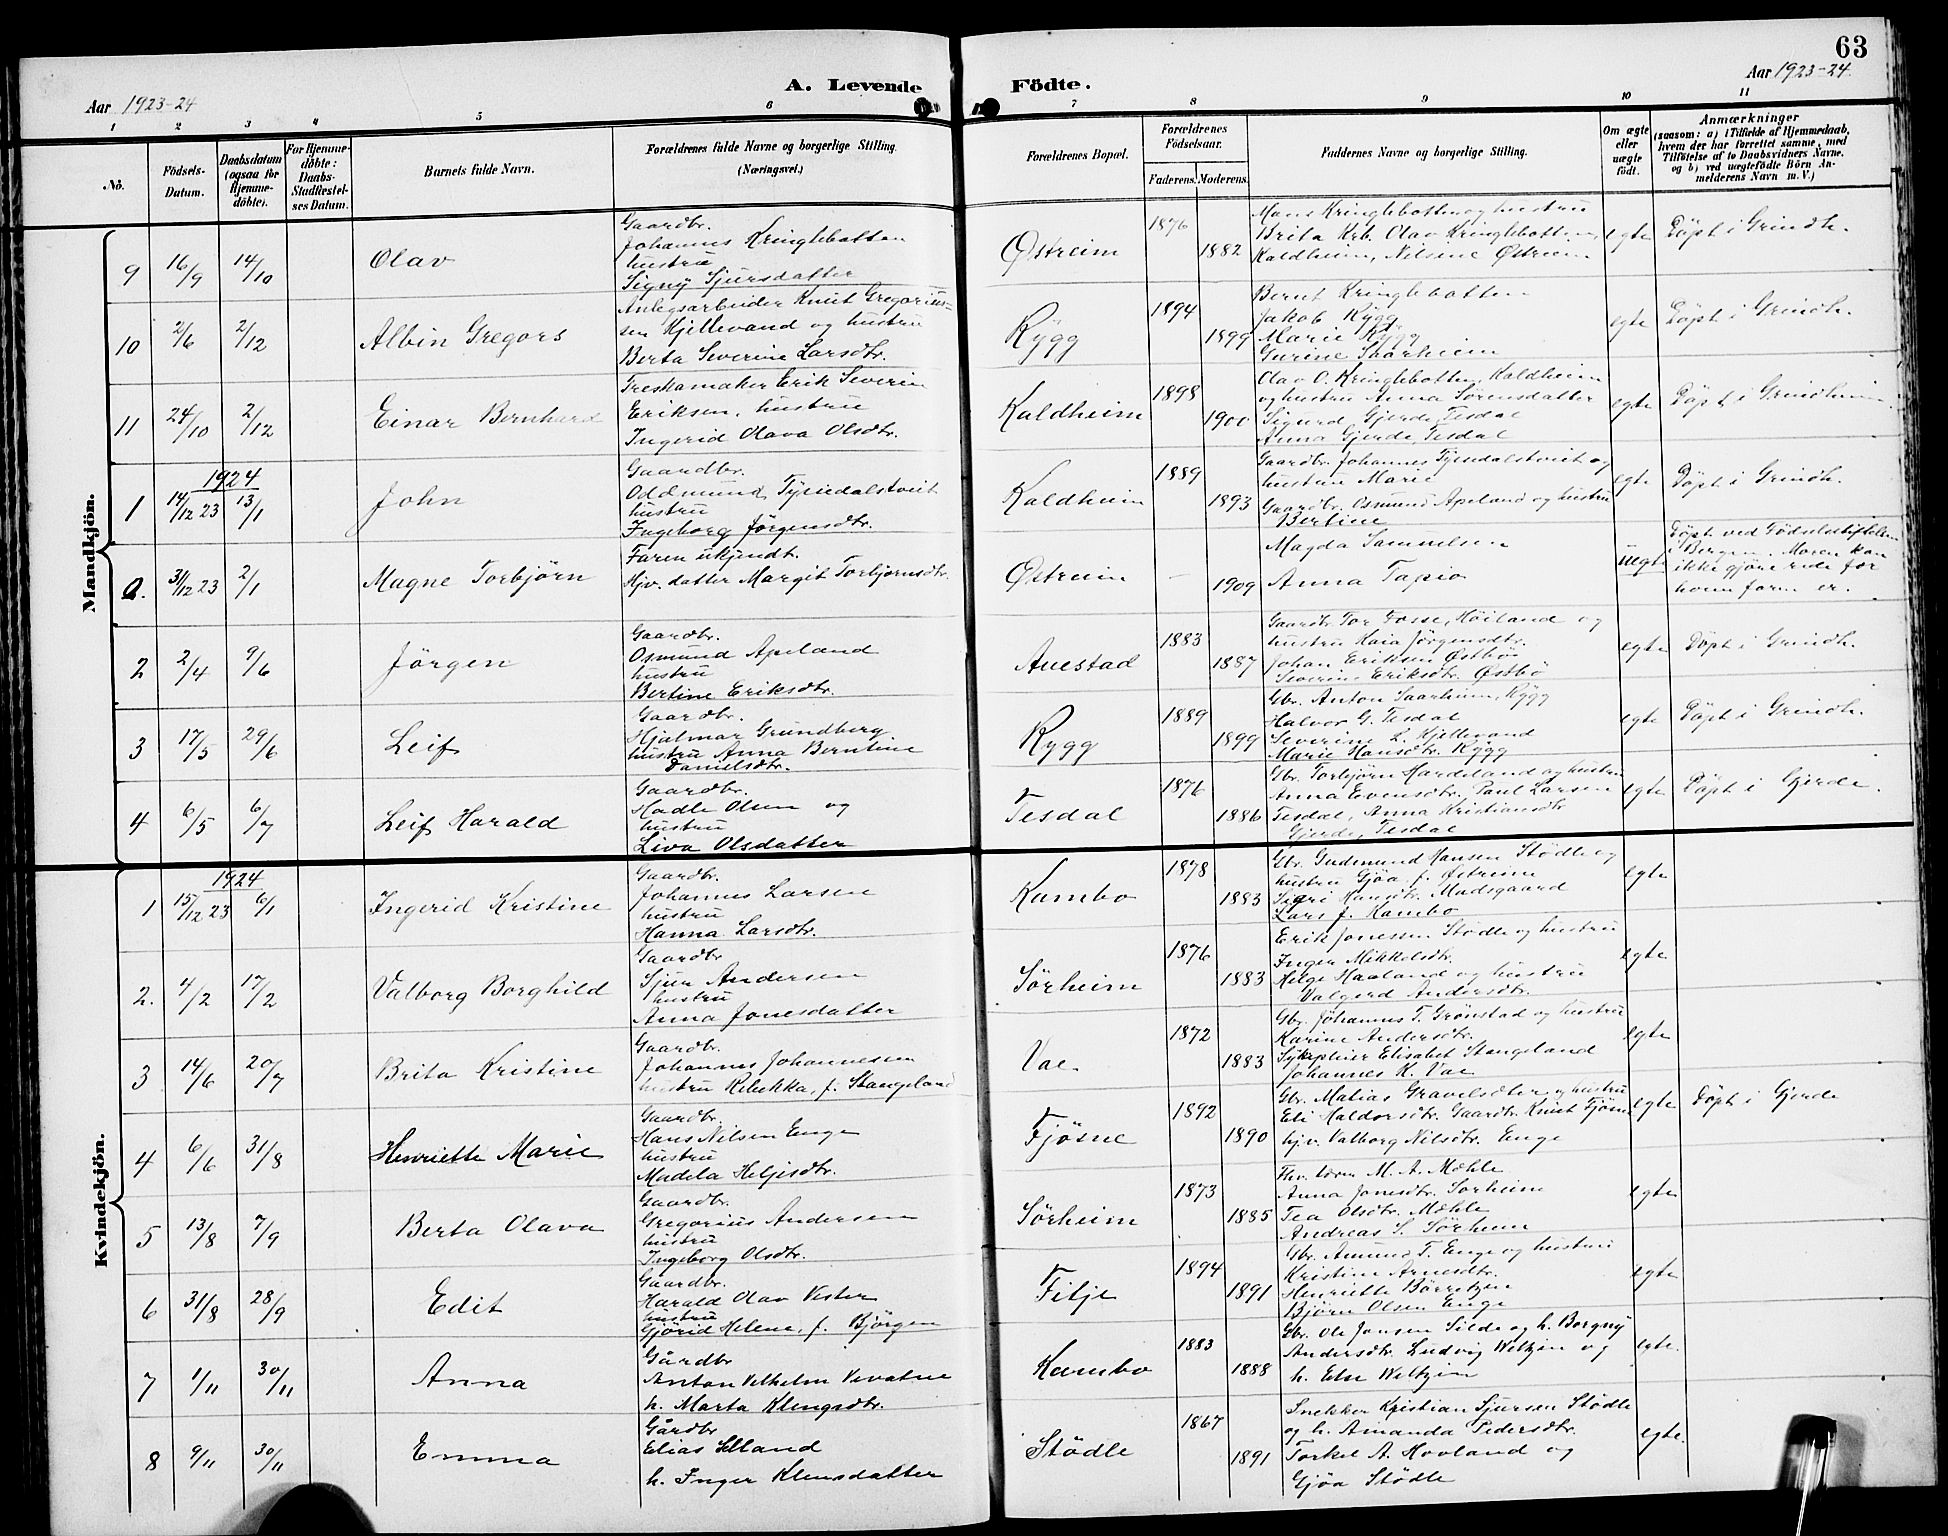 63
A. Levende Födte.
Aar 1923-24
Aar 1923-24
1 2 3 4 5 6 7 8 9 10 11
No.
Födsels-Datum.
Daabsdatum (ogsaa for Hjemme-döbte).
For Hjemme-döbte: Daabs-Stadfæstel-ses Datum.
Barnets fulde Navn.
Forældrenes fulde Navne og borgerlige Stilling. (Næringsvei.)
Forældrenes Bopæl.
Forældrenes Födselsaar.
Faderens. Moderens.
Faddernes Navne og borgerlige Stilling.
Om ægte eller uægte födt.
Anmærkninger
(saasom: a) i Tilfælde af Hjemmedaab, hvem der har forrettet samme, med Tilföielse af to Daabsvidners Navne, og b) ved uægtefödte Börn An-melderens Navn m. V.)
Mandkjön.
9 16/9 14/10 Olav
Gaardbr.
Johannes Kringlebotten
hustru
Signy Sjursdatter
Østreim 1876 1882
Mons Kringlebotten og hustru
Brita Krb. Olav Kringlebotten,
Kaldheim, Nilsine Østreim
egte Döpt i Grindh.
10 2/6 2/12 Albin Gregors
Anlegsarbeider Knut Gregorius-
sen Hjellevand og hustru
Berta Severine Larsdtr.
Rygg 1894 1899
Bernt Kringlebotten
Jakob Rygg
Marie Rygg
Gurine Saarheim
egte Döpt i Grindh.
11 24/10 2/12 Einar Bernhard
Treskomaker Erik Severin
Eriksen, hustru
Ingerid Olava Olsdtr.
Kaldheim 1898 1900
Olav O. Kringlebotten, Kaldheim
og hustru Anna Sörensdatter
Sigurd Gjerde, Tesdal
Anna Gjerde, Tesdal
egte Döpt i Grindheim.
1924
1 14/12 23 13/1 John
Gaardbr.
Oddmund Tysdalstveit
hustru
Ingeborg Jörgensdtr.
Kaldheim 1889 1893
Gaardbr. Johannes Tysdalstveit og
hustru Marie
Gaardbr. Osmund Apeland og hustru
Bertine
egte Döpt i Grindh.
a. 31/12 23 2/1 Magne Torbjörn
Faren ukjendt.
Hjv. datter Margit Torbjörnsdtr.
Østreim - 1909
Magda Samuelsen
Anna Tapio
uegte
Döpt ved Födselsstiftelsen
i Bergen. Moren kan
ikke gjöre rede for
hvem faren er.
2 2/4 9/6 Jörgen
Gaardbr.
Osmund Apeland
hustru
Bertine Eriksdtr.
Auestad 1883 1887
Gaardbr. Tor Fosse, Höiland og
hustru Kaia Jörgensdtr.
Johan Eriksen Østbö
Severine Eriksdtr. Østbö
egte Döpt i Grindh.
3 17/5 29/6 Leif
Gaardbr.
Hjalmar Grundberg
hustru Anna Berntine
Danielsdtr.
Rygg 1889 1899
Gbr. Anton Saarheim, Rygg
Halvor G. Tesdal
Severine L. Hjellevand
Marie Hansdtr. Rygg
egte Döpt i Grindh.
4 6/5 6/7 Leif Harald
Gaardbr.
Hadle Olsen og
hustru
Liva Olsdatter
Tesdal 1876 1886
Gbr. Torbjörn Hardeland og hustru
Anna Evensdtr. Paul Larsen
Tesdal, Anna Kristiansdtr
Gjerde, Tesdal
egte Döpt i Gjerde.
Kvindekjön.
1924
1 15/12 23 6/1 Ingerid Kristine
Gaardbr.
Johannes Larsen
hustru
Hanna Larsdtr.
Kambo 1878 1883
Gbr. Gudmund Hansen Stödle og
hustru Gjöa f. Østreim
Sigri Hansdtr. Madsgaard
Lars J. Kambo
egte
2. 4/2 17/2 Valborg Borghild
Gaardbr
Sjur Andersen
hustru
Anna Jonesdatter
Sörheim 1876 1883
Erik Jonessen Stödle og hustru
Inger Mikkelsdtr.
Helge Haaland og hustru
Valgerd Andersdtr.
egte
3 14/6 20/7 Brita Kristine
Gaardbr.
Johannes Johannesen
hustru Rebekka, f. Stangeland
Vae. 1872 1883
Gbr. Johannes T. Grönstad og hustru
Karine Andersdtr.
Sykepleier Elisabet Stangeland
Johannes K. Vae
egte
4 6/6 31/8 Henriette Marie
Gaardbr.
Hans Nilsen Enge
hustru
Madela Heljesdtr.
Fjösne 1892 1890
Gbr. Matias Gravelsæter og hustru
Eli Haldorsdtr. Gaardbr. Knut Fjösne
hjv. Valborg Nilsdtr. Enge
egte Döpt i Gjerde
5 13/8 7/9 Berta Olava
Gaardbr.
Gregorius Andersen
hustru
Ingeborg Olsdtr.
Sörheim 1873 1885
M. A. Mæhle
Anna Jonesdtr. Sörheim
Tea Olsdtr. Mæhle
Andreas S. Sörheim
egte
6 31/8 28/9 Edit
Gaardbr.
Harald Olav Vister
hustru
Gjörid Helene, f. Bjørgen
Fitje 1894 1891
Gbr. Amund T. Enge og hustru
Kristine Arnesdtr.
Henriette Börretzen
Björn Olsen Enge
egte
7 1/11 30/11 Anna
Gårdbr
Anton Vilhelm Vevatne
h. Marta Klengsdtr.
Kambo 1883 1888
Gbr. Ole Jonsen Silde og h. Borgny
Andersdtr. Ludvig Weltzin og
h. Else Weltzin
egte.
8 9/11 30/11 Emma
Gårdbr
Elias Elland
h. Inger Klemsdatter
Stödle 1867 1891
Snekker Kristian Sjursen Stödle
og h. Amanda Pedersdtr.
Torkel A. Hovland og
Gjöa Stödle
egte.